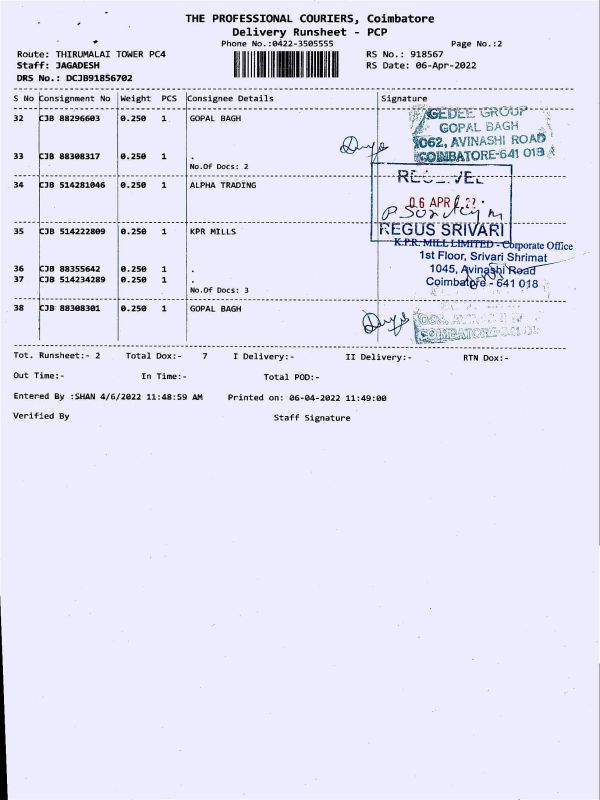 THE PROFESSIONAL COURIERS, Coimbatore
Delivery Runsheet - PCP
Phone No.:0422-3505555
Page No.:2
Route: THIRUMALAI TOWER PC4
RS No.: 918567
Staff: JAGADESH
RS Date: 06-Apr-2022
DRS No.: DCJB91856702
S No Consignment No Weight PCS Consignee Details Signature
32 CJB 88296603 0.250 1 GOPAL BAGH
GEDEE GROUP
GOPAL BAGH
1062, AVINASHI ROAD
COIMBATORE-641 018
33 CJB 88308317 0.250 1 .
No.Of Docs: 2
34 CJB 514281046 0.250 1 ALPHA TRADING
06 APR
35 CJB 514222809 0.250 1 KPR MILLS
REGUS SRIVARI
K.P.R. MILL LIMITED - Corporate Office
1st Floor, Srivari Shrimat
1045, Avinashi Road
Coimbatore - 641 018
36 CJB 88355642 0.250 1 .
37 CJB 514234289 0.250 1 .
No.Of Docs: 3
38 CJB 88308301 0.250 1 GOPAL BAGH
Tot. Runsheet:- 2 Total Dox:- 7 I Delivery:- II Delivery:- RTN Dox:-
Out Time:- In Time:- Total POD:-
Entered By :SHAN 4/6/2022 11:48:59 AM Printed on: 06-04-2022 11:49:00
Verified By Staff Signature